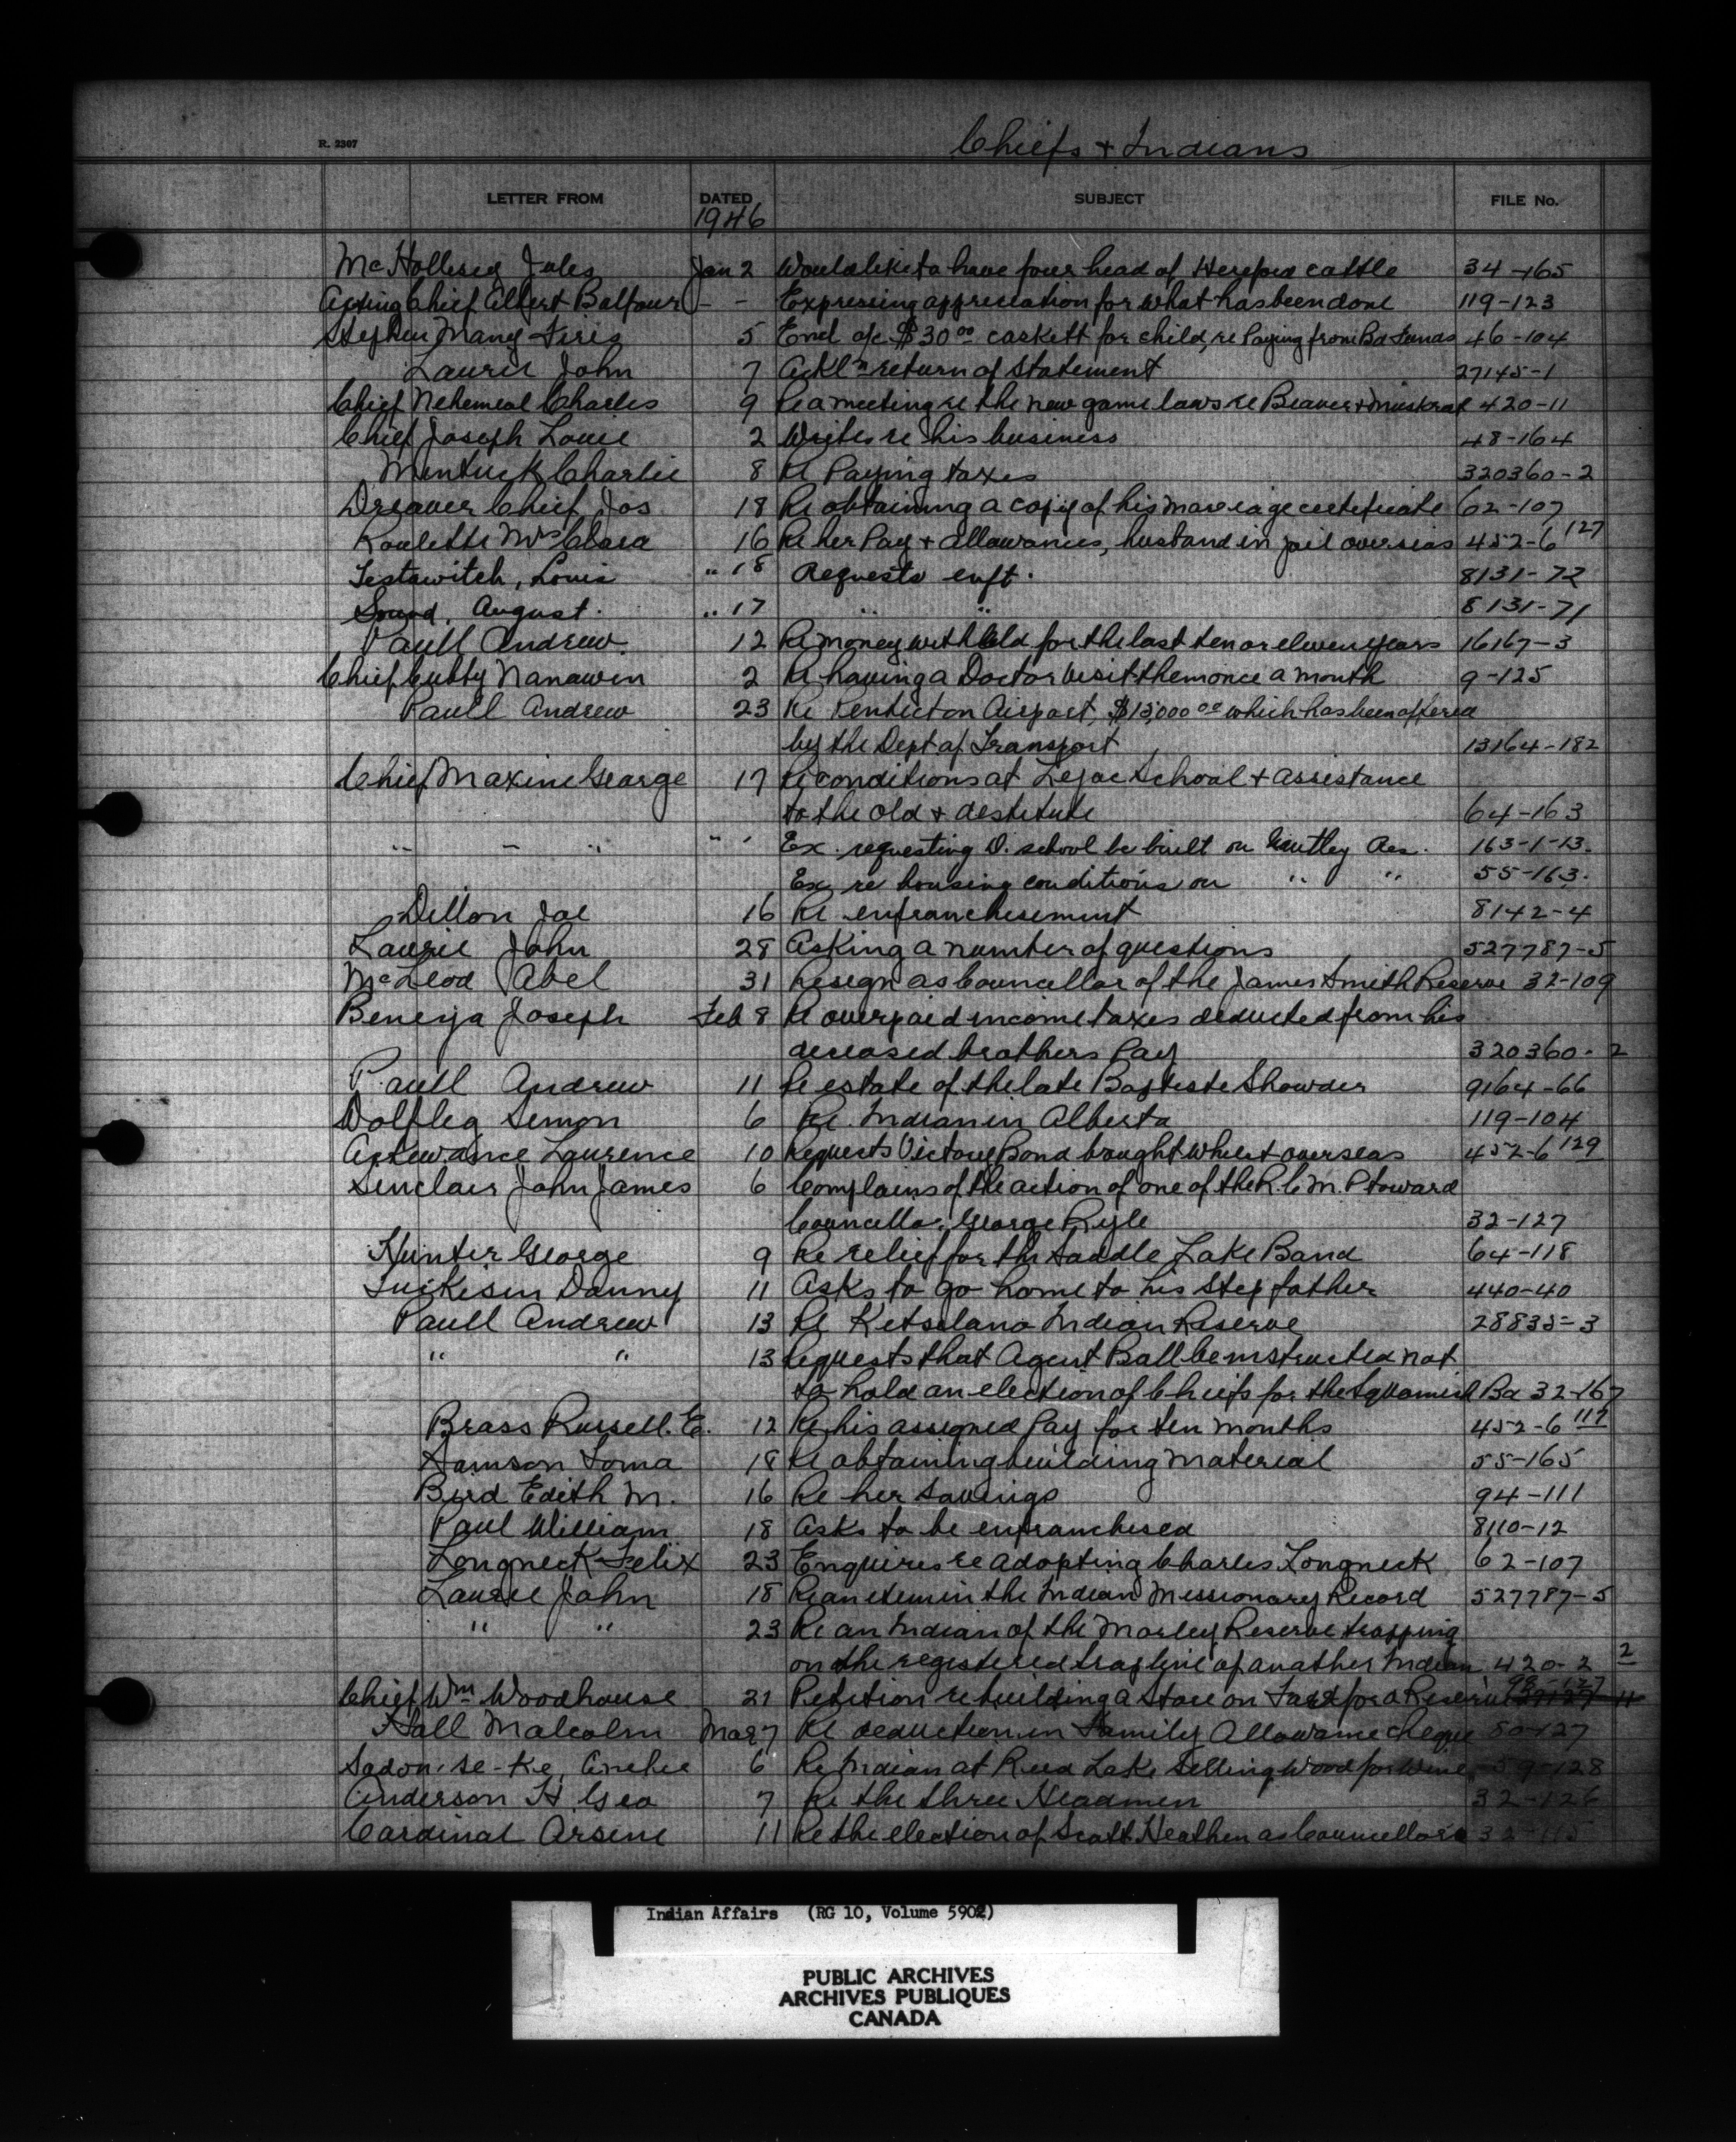 Chiefs + Indians
R. 2307
LETTER FROM DATED SUBJECT FILE No.
1946
Jules Jan 2 Would like to have four head of Hereford cattle 34-165
Acting Chief Albert Balfour - - Expressing appreciation for what has been done 119-123
Stephen Many Fires 5 Encl a/c $30.00 caskett for child, re Paying from Bd Funds 46-104
Laurie John 7 Ackl'n return of statement 27145-1
Chief Nehemeal Charles 9 Re a meeting re the new game laws re Beaver + Muskrat 420-11
Chief Joseph Louie 2 Writes re his business 48-164
Mentuck Charlie 8 Re Paying taxes 320360-2
Dreaver Chief Jos 18 Re obtaining a copy of his marriage certificate 62-107
Roulette Mrs Clara 16 Re her Pay + allowances, husband in jail overseas 452-6 127
Testawitch, Louis " 18 Requests enft. 8131-72
August. " 17 " " 8131-71
Paull Andrew. 12 Re money withheld for the last ten or eleven years 16167-3
Chief Cubby Nanawin 2 Re having a Doctor visit them once a month 9-125
Paull Andrew 23 Re Penticton Airport, $15,000.00 which has been offered
by the Dept of Transport 13164-182
Chief Maxine George 17 Re conditions at Lejac School + assistance
to the old + destitute 64-163
" " " " ' Ex. requesting D. school be built on Res. 163-1-13.
Ex re housing conditions on " " 55-163.
Dillon Joe 16 Re enfranchisement 8142-4
Laurie John 28 Asking a number of questions 527787-5
McLeod Abel 31 Resign as Councellor of the James Smith Reserve 32-109
Beneya Joseph Feb 8 Re overpaid income taxes deducted from his
deceased brothers Pay 320360-2
Paull Andrew 11 Re estate of the late Baptiste Showder 9164-66
Simon 6 Re. Indian in Alberta 119-104
Laurence 10 Requests Victory Bond bought whilst overseas 452-6 129
Sinclair John James 6 Complains of the action of one of the R.C.M.P toward
Councellor, George Ryle 32-127
Hunter George 9 Re relief for the Saddle Lake Band 64-118
Danny 11 Asks to go home to his step father 440-40
Paull Andrew 13 Re Kitsilano Indian Reserve 28835-3
" " 13 Requests that Agent Ball be instructed not
to hold an election of Chiefs for the Squamish Bd 32-167
Brass Russell. E. 12 Re his assigned Pay for ten months 452-6 117
Samson Toma 18 Re obtaining building material 55-165
Bird Edith M. 16 Re her savings 94-111
Paul William 18 Asks to be enfranchised 8110-12
Longneck Felix 23 Enquires re adopting Charles Longneck 62-107
Laurie John 18 Re an item in the Indian Missionary Record 527787-5
" " 23 Re an Indian of the Morley Reserve trapping
on the registered trapline of another Indian 420-2 2
Chief Wm Woodhouse 21 Petition re building a Store on Fairford Reserve 98-127
Hall Malcolm Mar 7 Re deduction in Family Allowance cheque 80-127
6 Re Indian at Reed Lake Selling Wood for Wine 59-128
Anderson H Geo 7 Re the three Headmen 32-126
Cardinal Arsene 11 Re the election of Scott Heathen as Councellors 32-115
Indian Affairs (RG 10, Volume 5902)
PUBLIC ARCHIVES
ARCHIVES PUBLIQUES
CANADA